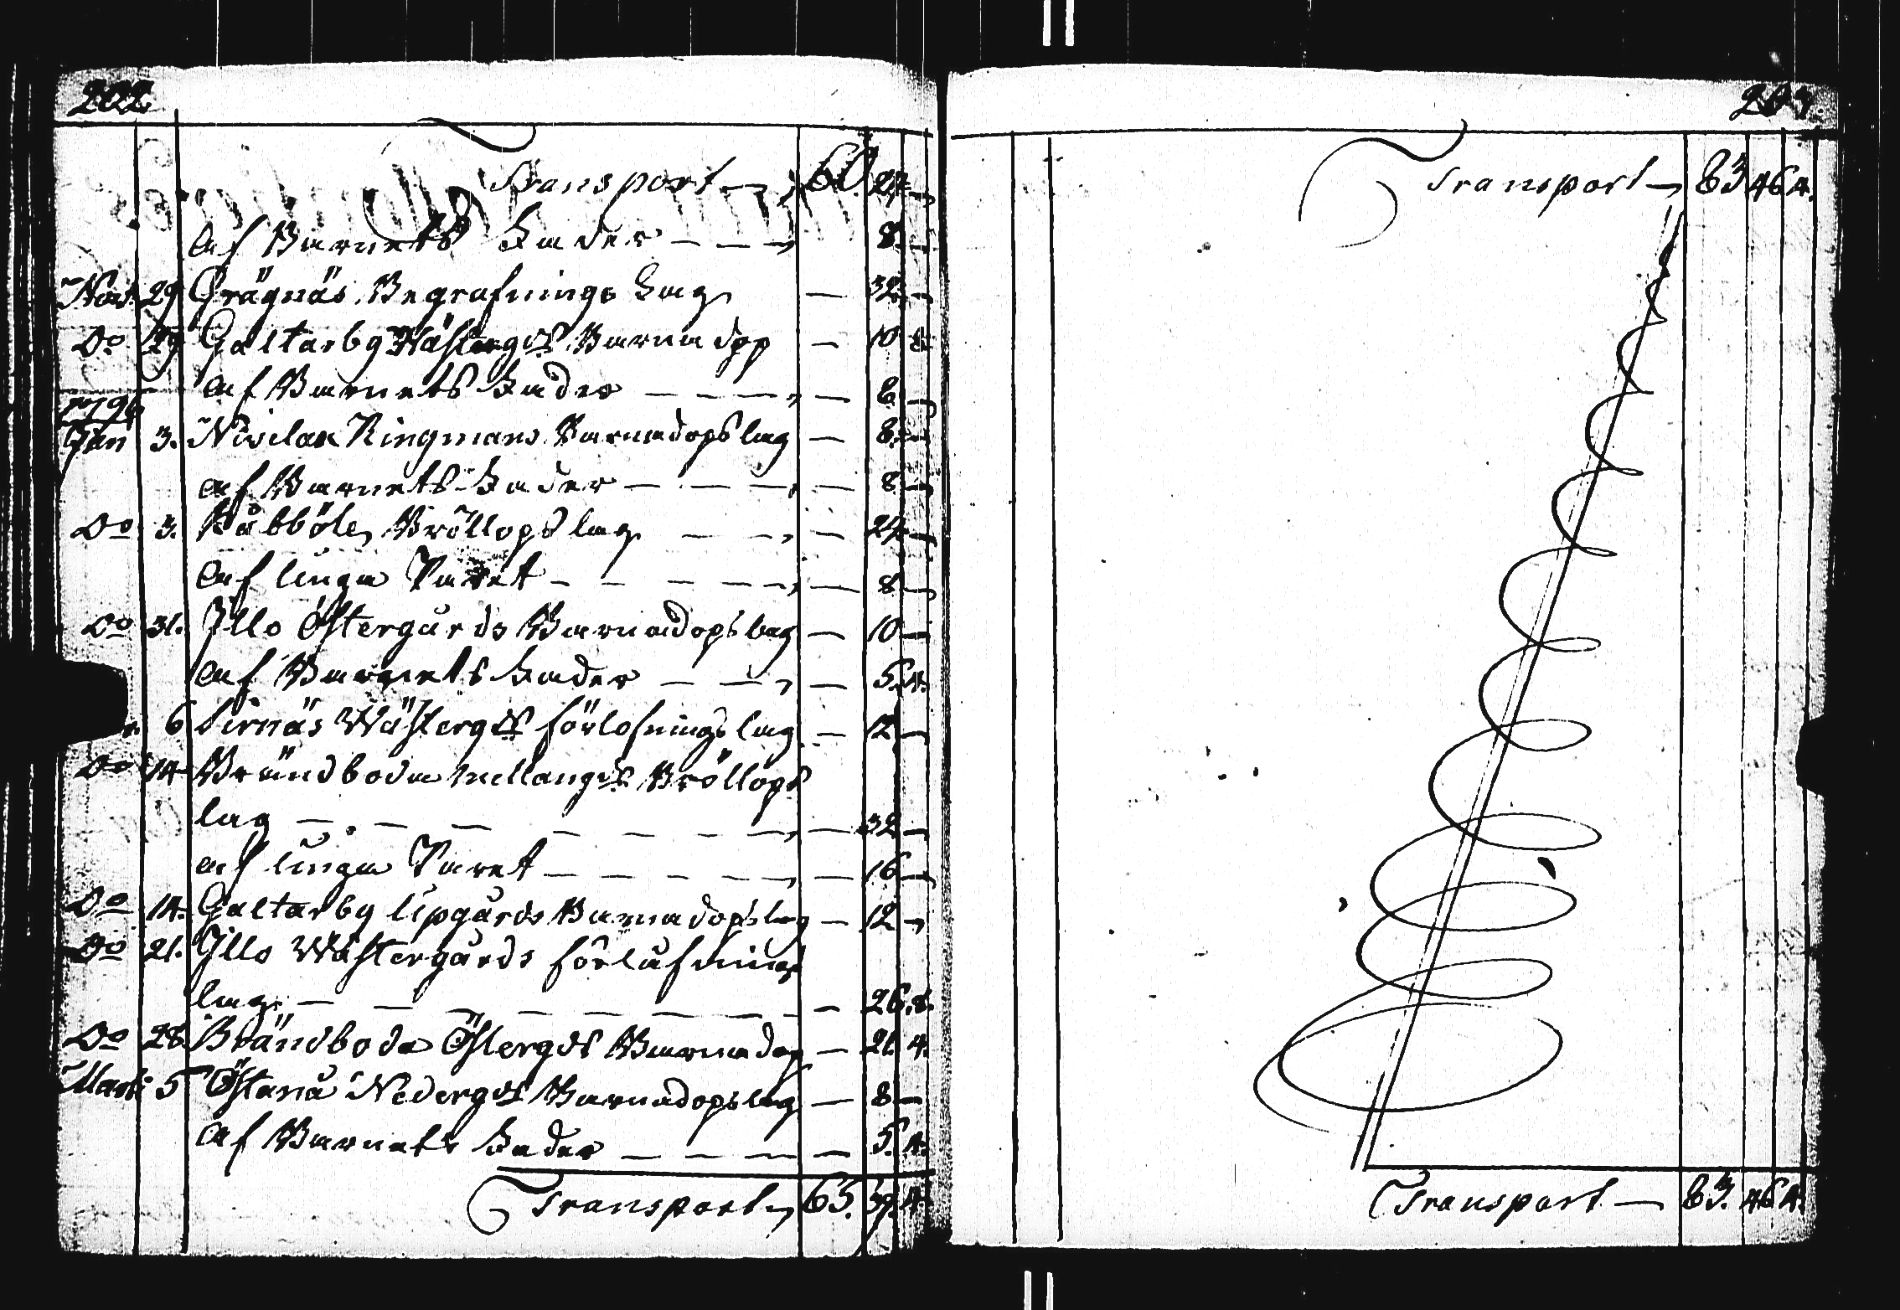 202
Transport 60. 24.
af Barnets Fader 8.
Nov. 29 Grägnäs Begrafnings Lag 32.
Do 29 Galtarby Wästergds Barnadop 10 8.
af Barnets Fader 8.
1796
Jan 3. Nicilax Ringmans Barnadopslag 8.
af Barnets Fader 8
Do 3. Påbböle Bröllopslag 24.
af unga Paret 8
Do 31. Illo Östergårds Barnadopslag 10
af Barnets Fader 5. 4.
6 Sirnäs Wästergds förlofningslag 12
Do 14 Brändboda mellangds Bröllops
lag 32
af unga Paret 16
Do 14. Galtarby Upgårds Barnadopslag 12
Do 21. Illo Wästergårds förlåfnings
lag 26. 8.
Do 28. Brändboda Östergds Barnadop 21. 4.
Marti 5 Östanå Nedergds Barnadopslag 8
af Barnets Fader 5. 4.
Transport 65. 39. 4
203.
Transport 83 46 4.
Transport 83. 46 4.